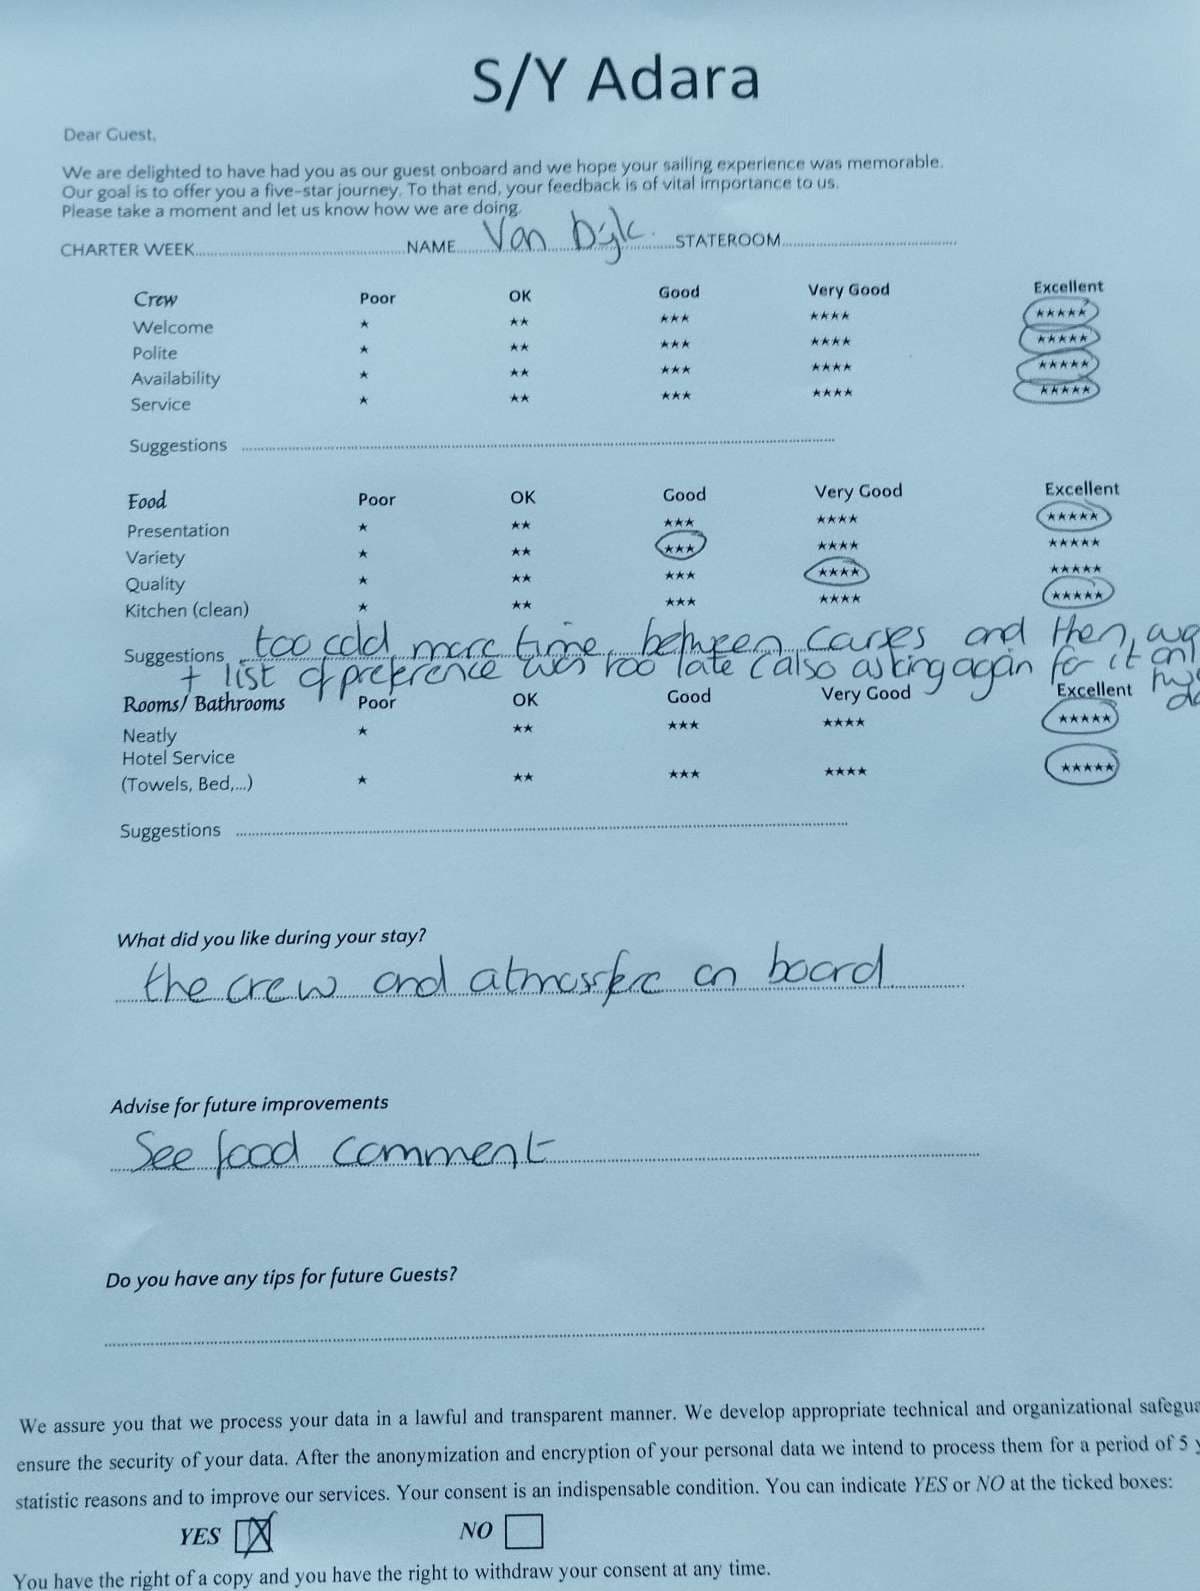 S/Y Adara
Dear Guest,
We are delighted to have had you as our guest onboard and we hope your sailing experience was memorable.
Our goal is to offer you a five-star journey. To that end, your feedback is of vital importance to us.
Please take a moment and let us know how we are doing.
CHARTER WEEK NAME Van Dijk STATEROOM
Crew Poor OK Good Very Good Excellent
Welcome ★ ★★ ★★★ ★★★★ ★★★★★
Polite ★ ★★ ★★★ ★★★★ ★★★★★
Availability ★ ★★ ★★★ ★★★★ ★★★★★
Service ★ ★★ ★★★ ★★★★ ★★★★★
Suggestions
Food Poor OK Good Very Good Excellent
Presentation ★ ★★ ★★★ ★★★★ ★★★★★
Variety ★ ★★ ★★★ ★★★★ ★★★★★
Quality ★ ★★ ★★★ ★★★★ ★★★★★
Kitchen (clean) ★ ★★ ★★★ ★★★★ ★★★★★
Suggestions too cold, more time between courses and then
+ list of preference was too late (also asking again for it
Rooms/ Bathrooms Poor OK Good Very Good Excellent
Neatly ★ ★★ ★★★ ★★★★ ★★★★★
Hotel Service
(Towels, Bed,...) ★ ★★ ★★★ ★★★★ ★★★★★
Suggestions
What did you like during your stay?
the crew and atmosfere on board
Advise for future improvements
See food comment
Do you have any tips for future Guests?
We assure you that we process your data in a lawful and transparent manner. We develop appropriate technical and organizational safegua
ensure the security of your data. After the anonymization and encryption of your personal data we intend to process them for a period of 5 y
statistic reasons and to improve our services. Your consent is an indispensable condition. You can indicate YES or NO at the ticked boxes:
YES NO
You have the right of a copy and you have the right to withdraw your consent at any time.